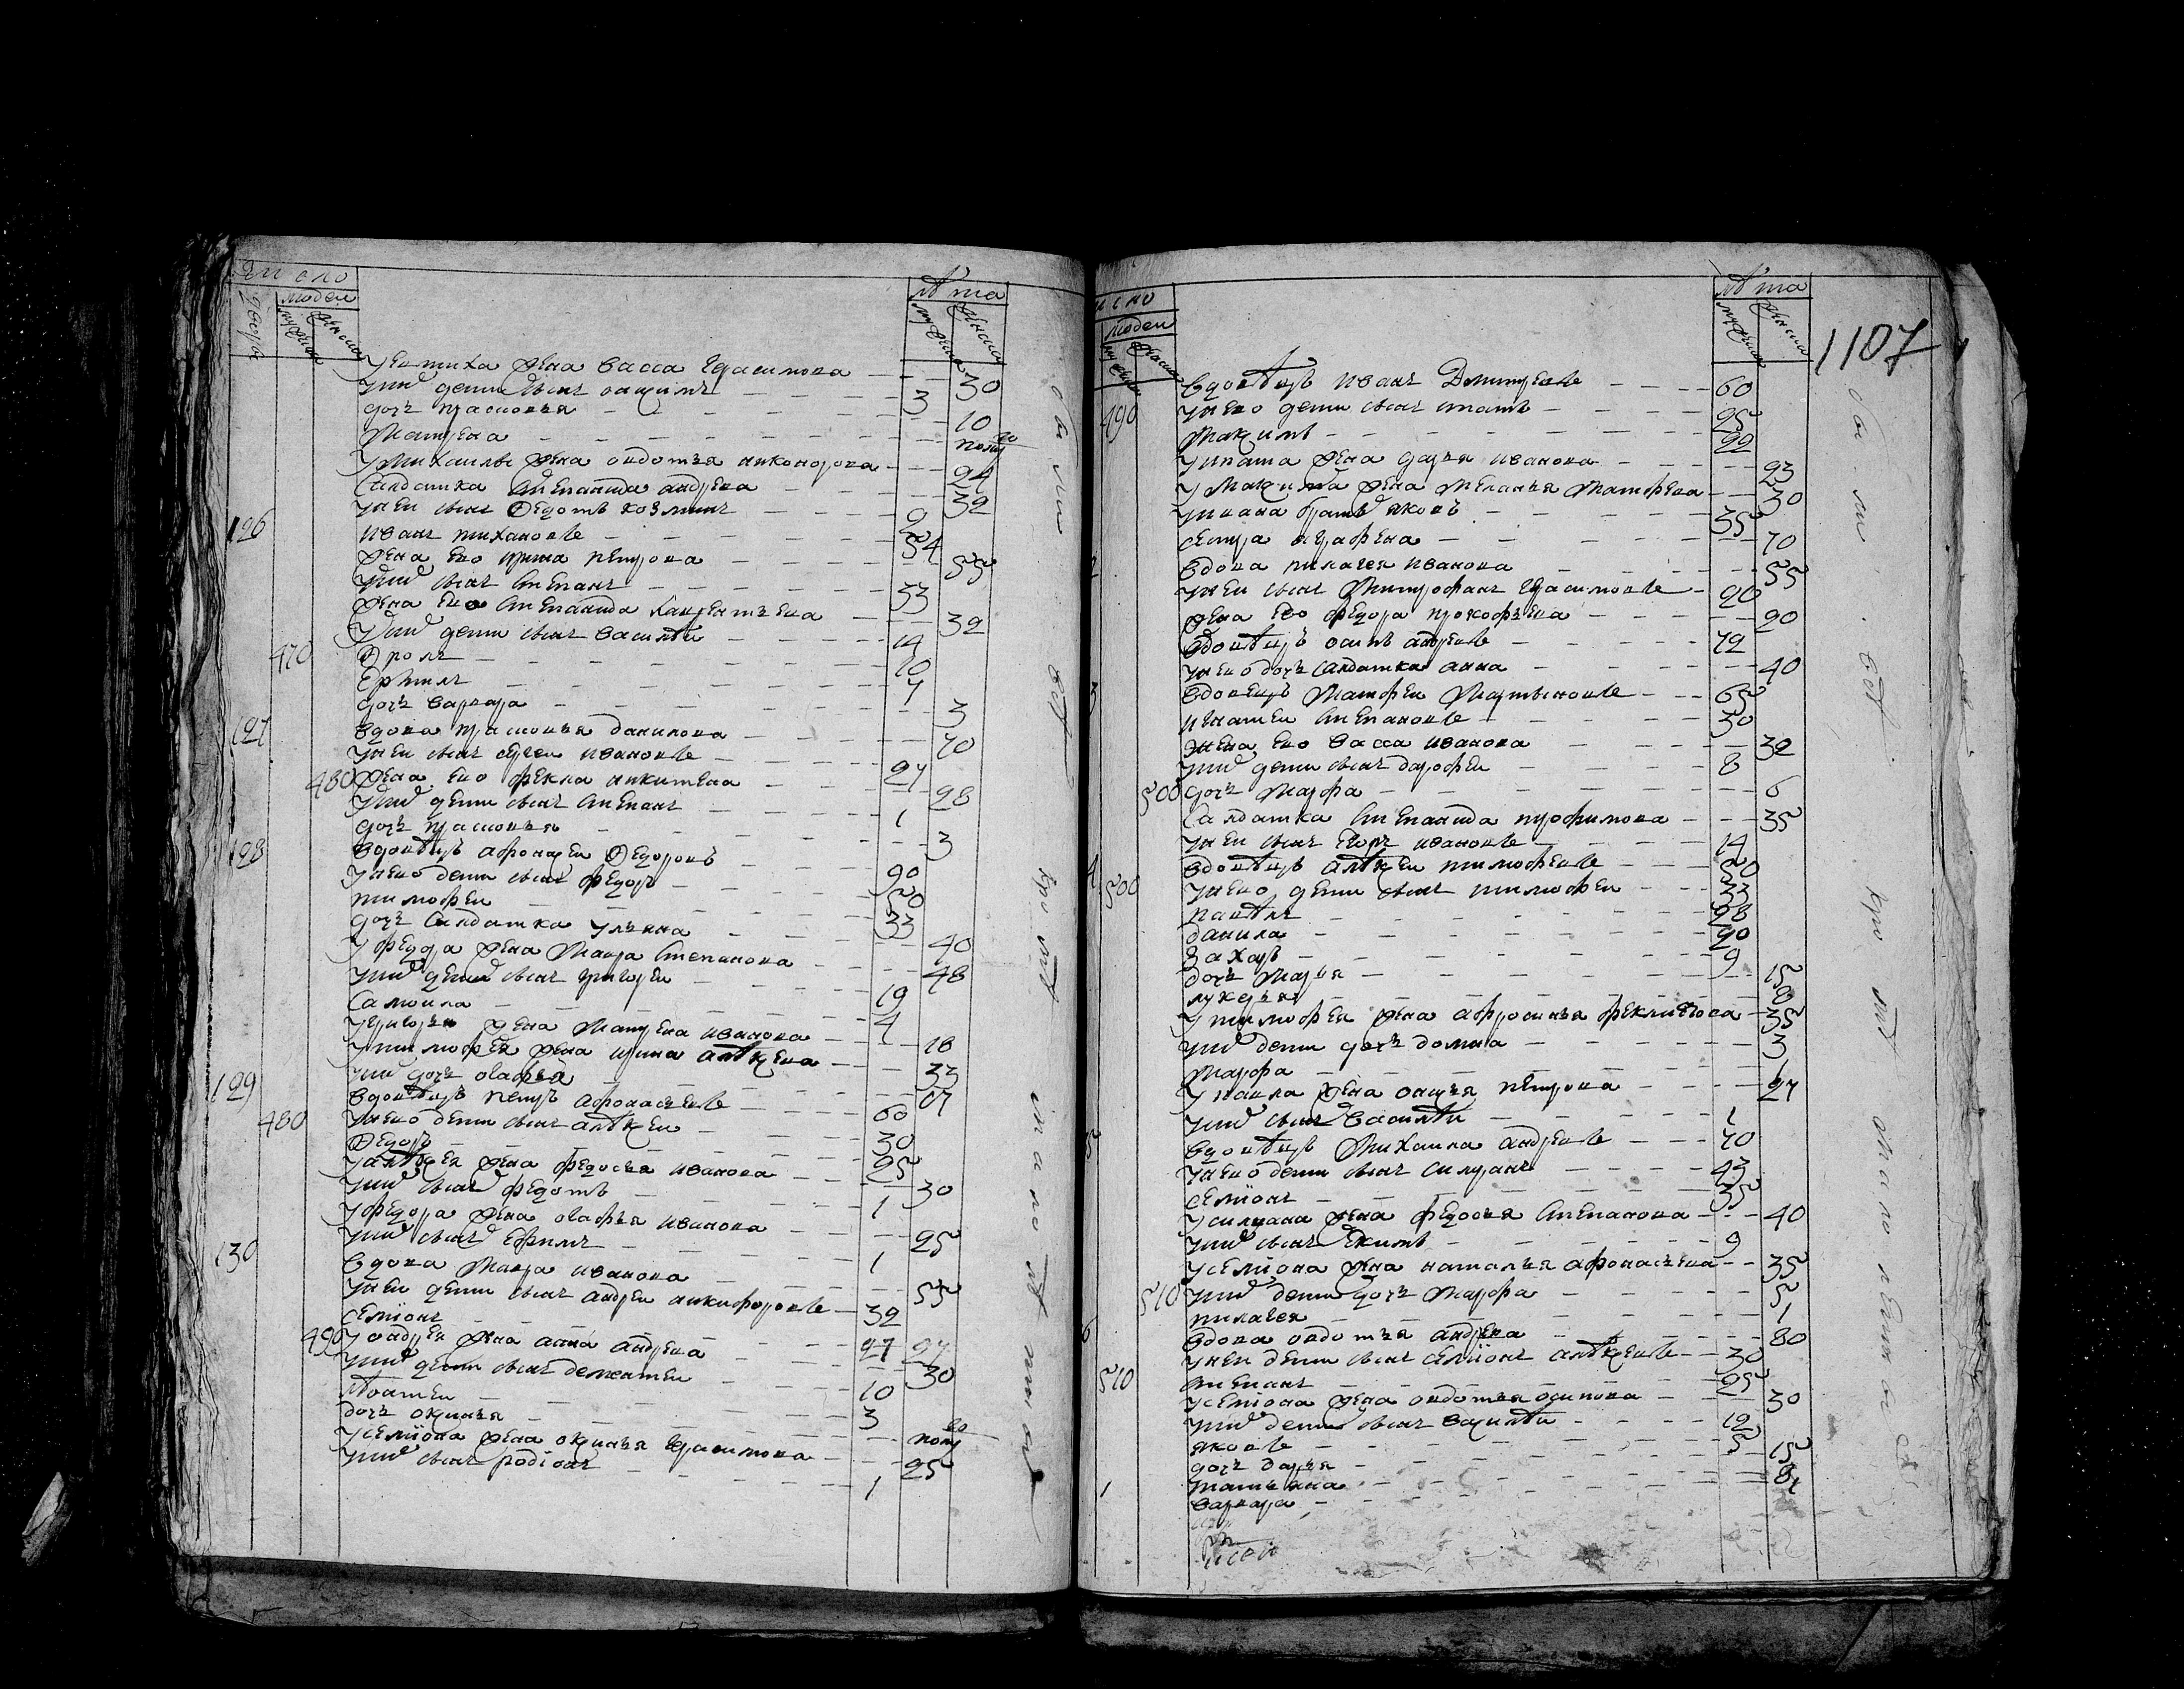 число
людей
лѣта
у евтиха жена васса герасимова 30
у них дети сынъ максимъ 3
дочь прасковья 10
матрена полу го
у михаилы жена овдотья никонорова 24
салдатка степанида андреева 32
у неи сынъ федотъ козминъ 9
126 иванъ тихановъ 54
жена ево ирина петрова 55
у них сынъ степанъ 33
жена ево степанида лаврентьева 32
у них дети сынъ василеи 14
470 фролъ 10
ефимъ 7
дочь варвара 3
127 вдова прасковья данилова 70
у неи сынъ сергеи ивановъ 27
480 жена ево фекла никитина 28
у них дети сынъ степанъ 1
дочь прасковья 3
128 вдовецъ афонасеи федоровъ 90
у нево дети сынъ федоръ 50
тимофеи 33
дочь салдатка ульяна 40
у федора жена мавра степанова 48
у них дети сынъ григореи 19
самоила 4
у григорья жена матрена иванова 18
у тимофея жена ирина алексеева 33
у них дочь агафья
129 вдовецъ петръ афонасьевъ 60
480 у нево дети сынъ алексеи 30
федоръ 25
у алексея жена федосья иванова 30
у них сынъ федотъ 1
у федора жена агафья иванова 25
у них сынъ ефимъ 1
130 вдова мавра иванова 55
у неи дети сынъ андреи никифоровъ 32
семионъ 27
490 у андрея жена анна андреева 30
у них дети сынъ дементеи 10
3
дочь оксинья полу го
у семиона жена оксинья герасимова 25
у них сынъ родионъ 1
число
людей
лѣта
1107
вдовецъ иванъ дмитревъ 60
490 у нево дети сынъ ипатъ 25
максимъ 22
у ипата жена дарья иванова 23
у максима жена меланья матфеева 30
у ивана братъ яковъ 35
сестра аграфена 70
2 вдова пилагея иванова 55
у неи сынъ митрофанъ герасимовъ 20
жена ево федора прокофьева 20
вдовецъ осипъ андреевъ 72
у нево дочь салдатка анна 40
3 вдовецъ матфеи мартыновъ 65
игнатеи степановъ 30
жена ево васса иванова 32
у них дети сынъ дарофеи 8
500 дочь марфа 6
салдатка степанида трофимова 35
у неи сынъ егоръ ивановъ 14
4 вдовецъ алексеи тимофеевъ 50
500 у нево дети сынъ тимофеи 33
павелъ 28
данила 20
захаръ 9
дочь марья 15
лукерья
у тимофея жена афросинья феклистова 35
у них дети дочь домна 3
марфа 1
у павла жена оксинья петрова 27
у них сынъ василеи 1
5 вдовецъ михаила андреевъ 70
у нево дети сынъ силуанъ 43
семионъ 35
у силуана жена федосья степанова 40
у них сынъ екимъ 9
у семиона жена наталья афонасьева 35
510 у них дети дочь марфа 5
пилагея 1
6 вдова овдотья андреева 80
у неи дети сынъ семионъ алексеевъ 30
510 степанъ 25
у семиона жена овдотья осипова 30
у них дети сынъ василеи 12
яковъ 5
дочь дарья 15
татьяна 8
варвара